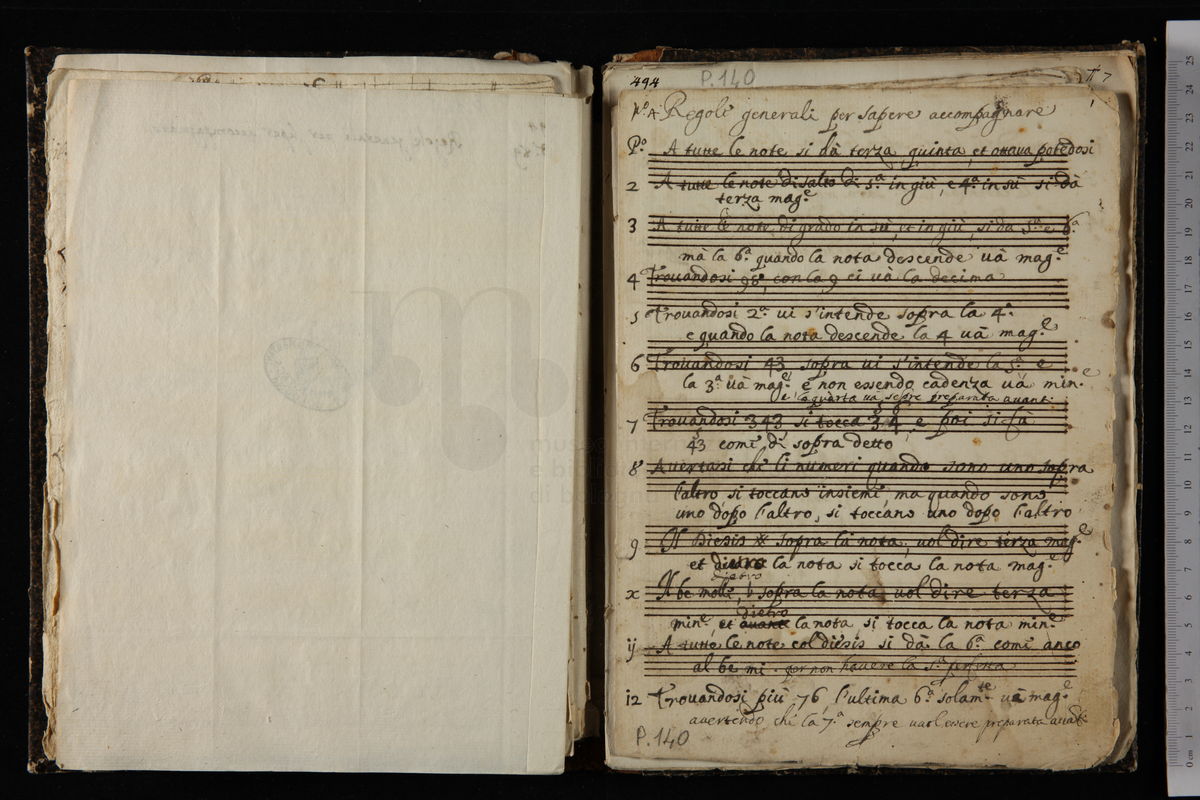 494
P.140
N.º 4 Regole generali per sapere accompagnare
P.º A tutte le note si dà terza, quinta, et ottava potẽdosi
2 A tutte le note di salto di 5.ª in giù, e 4.ª in sù si dà
terza mag.e
3 A tutte le note di grado in sù, et in giù, si dà 5.ª e 6.ª
mà la 6.ª quando la nota descende và mag.e
4 Trovandosi 98, con la 9 ci và la decima
5 Trovandosi 2.ª vi s'intende sopra la 4.ª
e quando la nota descende la 4 và mag.e
6 Trovandosi 43 sopra vi s'intende la 5.ª e
la 3.ª và mag.e e non essendo cadenza và min.e
e la quarta va sẽpre preparata avanti
7 Trovandosi 343 si tocca 3 4 e poi si fà
43 come di sopra detto
8 Avertasi che li numeri quando sono uno sopra
l'altro si toccano insieme, ma quando sono
uno dopo l'altro, si toccano uno dopo l'altro
9 Il Diesis ※ sopra la nota, vol dire terza mag.e
et dietro la nota si tocca la nota mag.e
x Il be molle, b sopra la nota vol dire terza
dietro
min.e et avante la nota si tocca la nota min.e
ij A tutte le note col diesis si dà la 6.ª come anco
al be mi per non havere la 5.ª perfetta
12 Trovandosi più 76, l'ultima 6.ª solam.te và mag.e
avertendo che la 7.ª sempre vuol essere preparata avãti
P.140